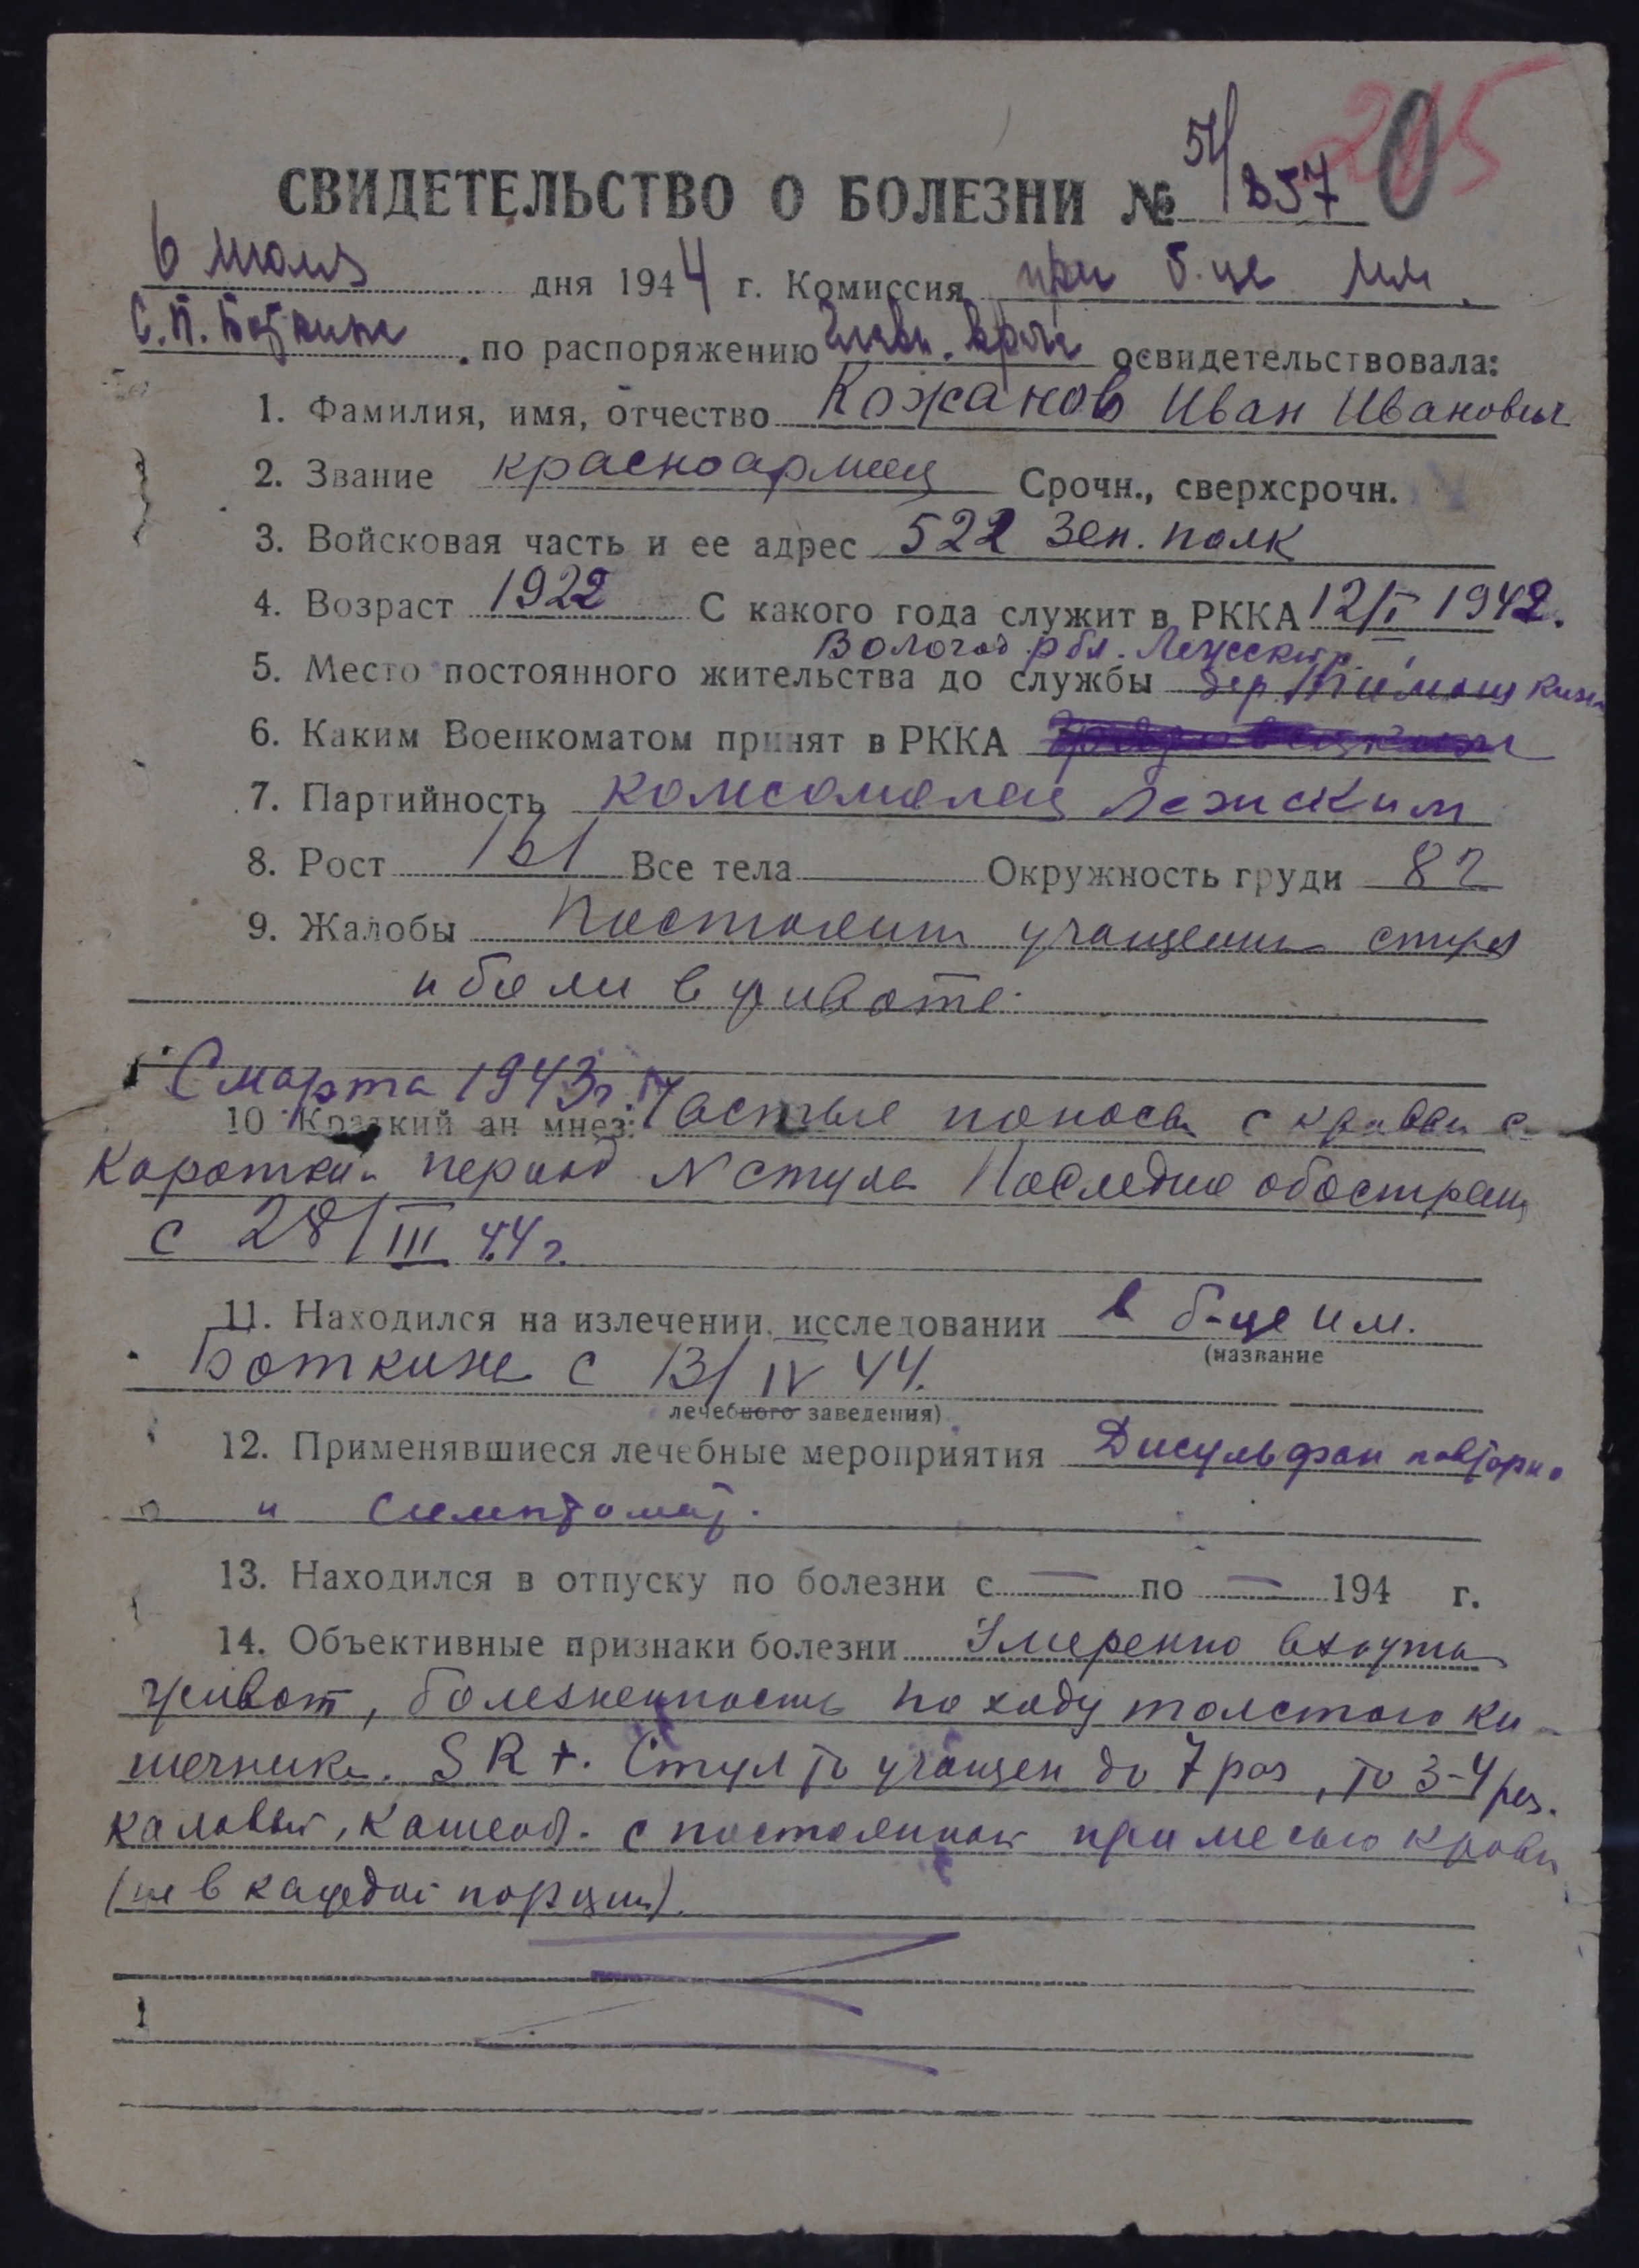 205
0
54/857
СВИДЕТЕЛЬСТВО О БОЛЕЗНИ №
6 июля дня 1944 г. Комиссия при б-це им.
С. П. Боткина по распоряжению Главн. врача освидетельствовала:
1. Фамилия, имя, отчество Кожанов Иван Иванович
2. Звание красноармеец Срочн., сверхсрочн.
3. Войсковая часть и ее адрес 522 Зен. полк
4. Возраст 1922 С какого года служит в РККА 12/I 1942.
Вологод. обл. Лежский р.
5. Место постоянного жительства до службы дер.
6. Каким Военкоматом принят в РККА
7. Партийность комсомолец Лежским
8. Рост 161 Все тела Окружность груди 82
9. Жалобы Постоянн учащение стула
и боли в животе.
С марта 1943 г.
10 Краткий ан мнез: Частые поносы с кровью с
коротким период N стула Последнее обострен
с 28/III 44 г.
11. Находился на излечении, исследовании в б-це им.
(название
Боткина с 13/IV 44.
лечебного заведения)
12. Применявшиеся лечебные мероприятия Дисульфан повторно
и симптомат.
13. Находился в отпуску по болезни с — по — 194 г.
14. Объективные признаки болезни Умеренно вздутый
живот, болезненность по ходу толстого ки-
шечника. SR +. Стул то учащен до 7 раз, то 3-4 раз.
каловый, кашеоб. с постоянной примесью крови
(не в каждой порции).